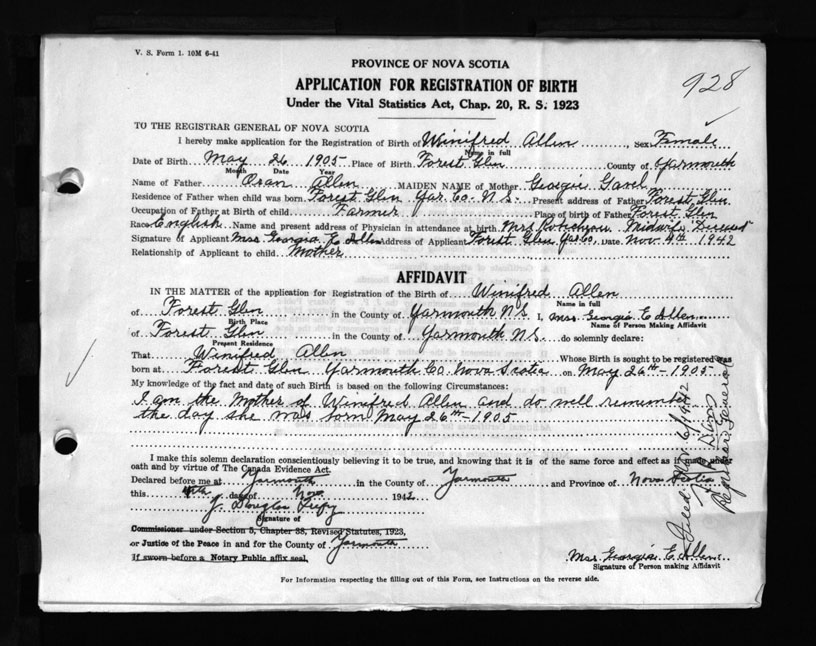 V. S. Form 1. 10M 6-41
928
PROVINCE OF NOVA SCOTIA
APPLICATION FOR REGISTRATION OF BIRTH
Under the Vital Statistics Act, Chap. 20, R. S. 1923
TO THE REGISTRAR GENERAL OF NOVA SCOTIA
I hereby make application for the Registration of Birth of Winifred Allen, Sex Female
Name in full
Date of Birth May 26 1905 Place of Birth Forest Glen County of Yarmouth
Month Date Year
Name of Father Oran Allen MAIDEN NAME of Mother Georgie Gavel
Residence of Father when child was born Forest Glen Yar. Co. N.S. Present address of Father Forest Glen
Occupation of Father at Birth of child Farmer Place of birth of Father Forest Glen
Race English Name and present address of Physician in attendance at birth Mrs Midwife
Signature of Applicant Mrs Georgia E Allen Address of Applicant Forest Glen Yar Co. Date Nov 4th 1942
Relationship of Applicant to child Mother
AFFIDAVIT
IN THE MATTER of the application for Registration of the Birth of Winifred Allen
Name in full
of Forest Glen in the County of Yarmouth N.S. I, Mrs. Georgie E Allen
Birth Place Name of Person Making Affidavit
of Forest Glen in the County of Yarmouth N.S. do solemnly declare:
Present Residence
That Winifred Allen Whose Birth is sought to be registered was
born at Forest Glen Yarmouth Co. Nova Scotia on May 26th - 1905
My knowledge of the fact and date of such Birth is based on the following Circumstances:
I am the Mother of Winifred Allen and do well remember
the day she was born May 26th - 1905
I make this solemn declaration conscientiously believing it to be true, and knowing that it is of the same force and effect as if made under
oath and by virtue of The Canada Evidence Act.
Declared before me at Yarmouth in the County of Yarmouth and Province of Nova Scotia
this 4th day of Nov. 1942
J. Douglas
Signature of
Commissioner under Section 5, Chapter 38, Revised Statutes, 1923,
or Justice of the Peace in and for the County of Yarmouth
If sworn before a Notary Public affix seal.
Mrs Georgia E Allen
Signature of Person making Affidavit
For Information respecting the filling out of this Form, see Instructions on the reverse side.
Filed Nov 6/1942
Registrar General